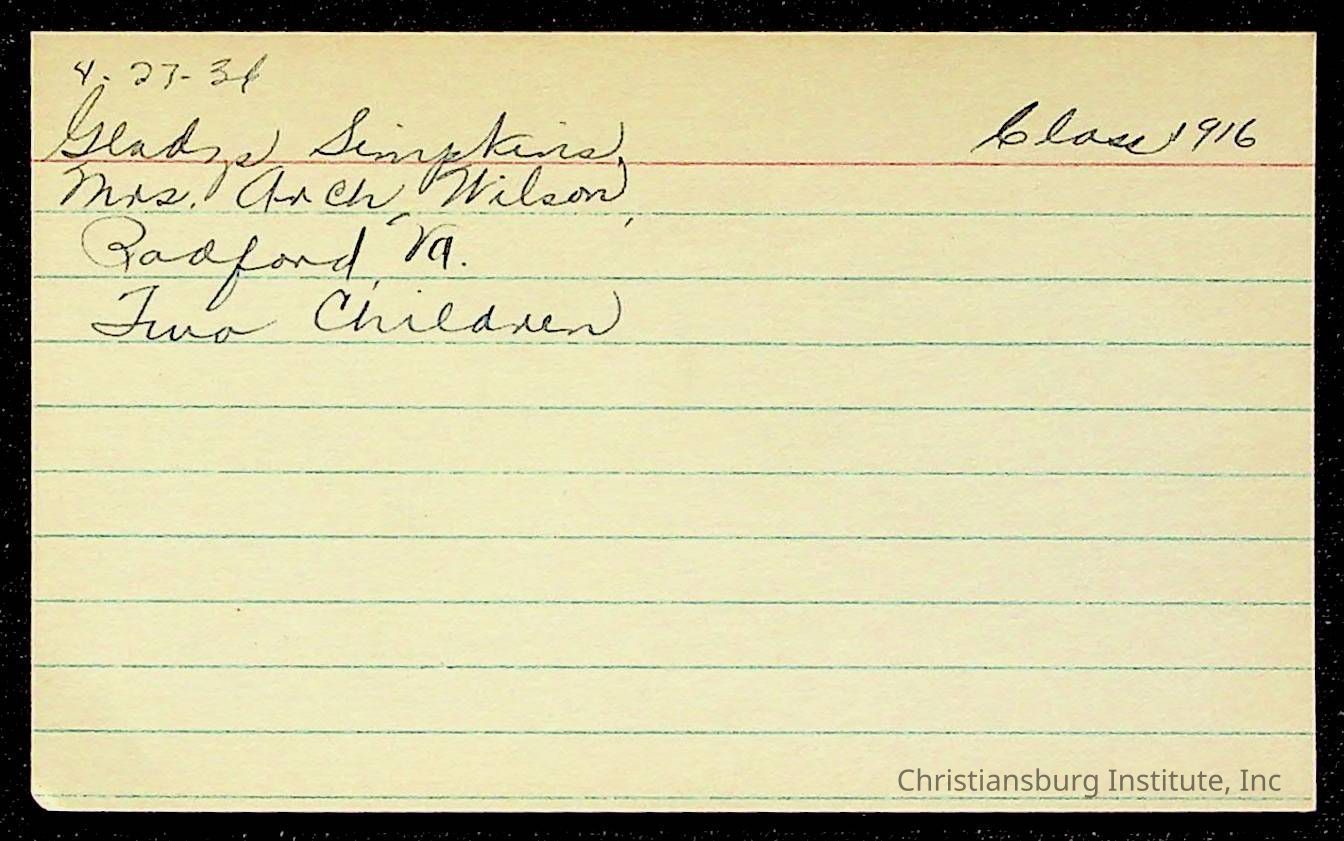 4-27-36
Gladys Simpkins, Class 1916
Mrs. Arch Wilson,
Radford, Va.
Two Children
Christiansburg Institute, Inc